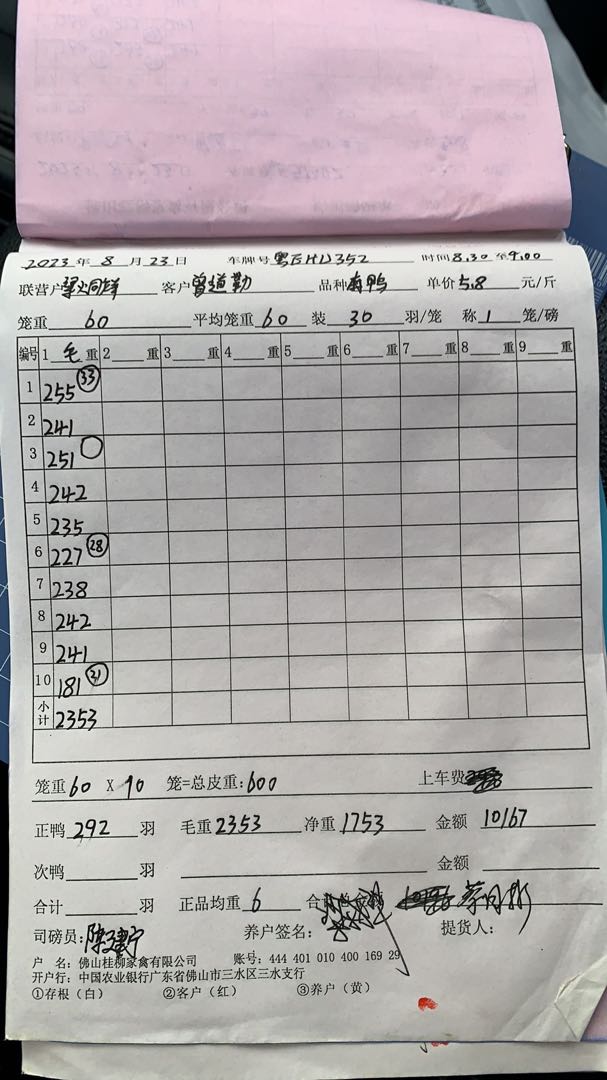 2023年8月23日 车牌号 粤EHD352 时间8.30至9.00
联营户 客户 曾道勤 品种 鸭 单价5.8元/斤
笼重 60 平均笼重 60 装 30 羽/笼 称 1 笼/磅
编号 1 毛 重 2 重 3 重 4 重 5 重 6 重 7 重 8 重 9 重
1 255 33
2 241
3 251
4 242
5 235
6 227 28
7 238
8 242
9 241
10 181 21
小计 2353
笼重 60 X 10 笼=总皮重: 600 上车费
正鸭 292 羽 毛重 2353 净重 1753 金额 10167
次鸭 羽 金额
合计 羽 正品均重 6
司磅员: 养户签名: 提货人:
户 名: 佛山桂柳家禽有限公司 账号: 444 401 010 400 169 29
开户行: 中国农业银行广东省佛山市三水区三水支行
①存根（白） ②客户（红） ③养户（黄）